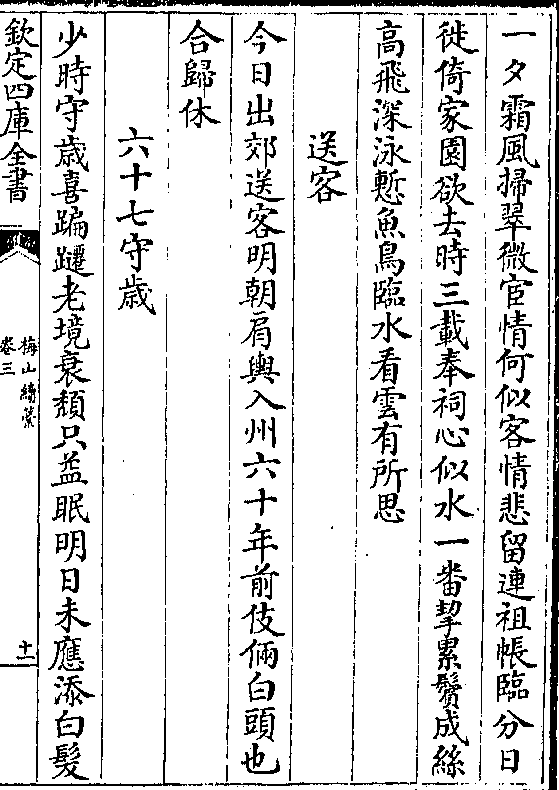 一夕霜風掃翠微宦情何似客情悲留連祖帳臨分日
徙倚家園欲去時三載奉祠心似水一番挈累鬢成絲
高飛深泳慙魚鳥臨水看雲有所思
送客
今日出郊送客明朝肩輿入州六十年前伎倆白頭也
合歸休
六十七守歳
少時守歳喜蹁躚老境衰頽只益眠明日未應添白髮
欽定四庫全書
梅山續藁
卷三
十一